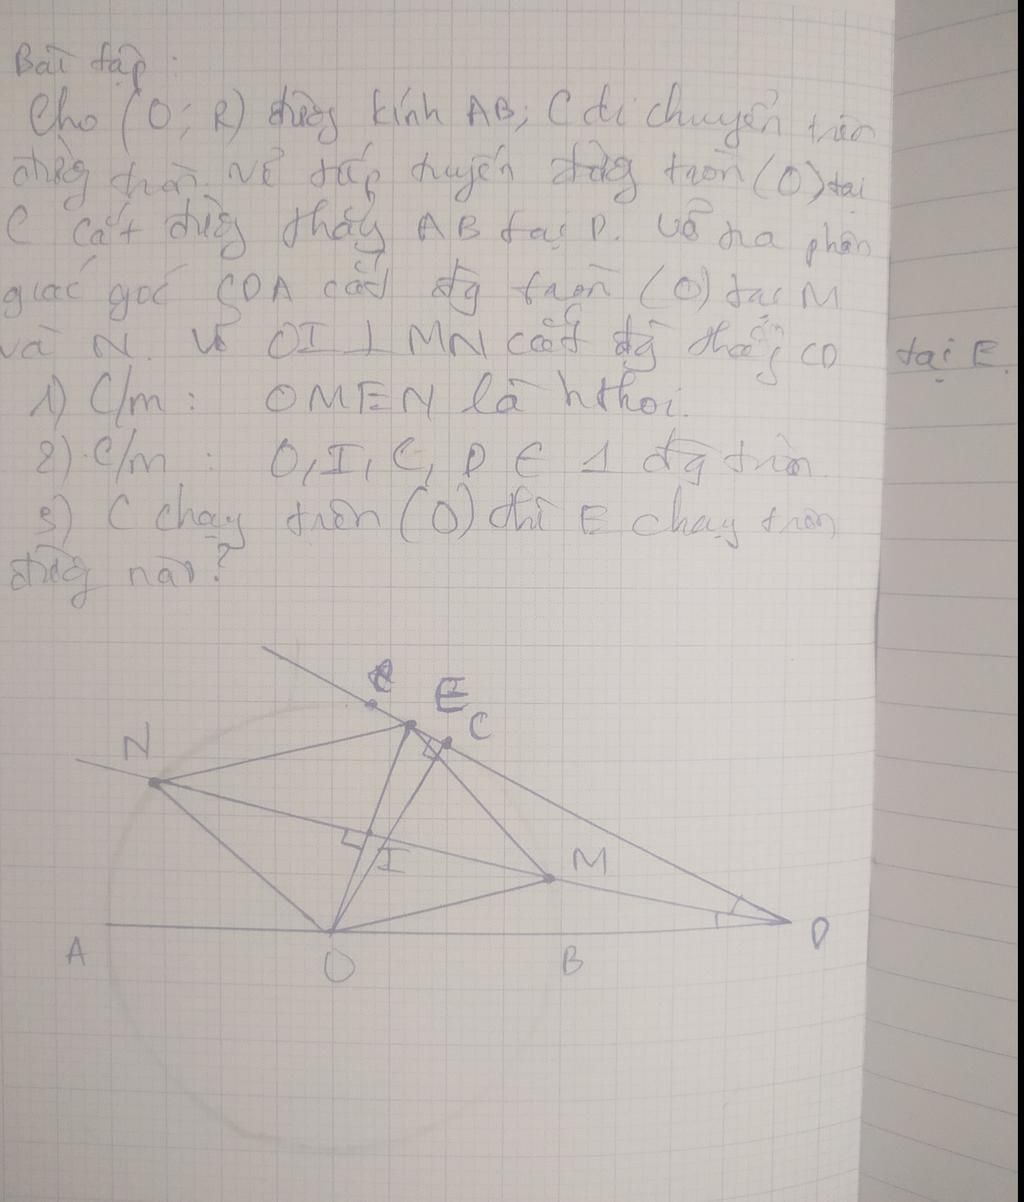 Bài tập:
Cho (O; R) đường kính AB; C di chuyển trên
đường tròn. Vẽ tiếp tuyến đường tròn (O) tại
C cắt đường thẳng AB tại D. Vẽ tia phân
giác góc CDA cắt đg tròn (O) tại M
và N. Vẽ OI ⊥ MN cắt đg thẳng CD tại E.
1) C/m: OMEN là h thoi.
2) C/m: O, I, C, D ∈ 1 đg tròn
3) C chạy trên (O) thì E chạy trên
đường nào?
E C
N
I M
A O B D